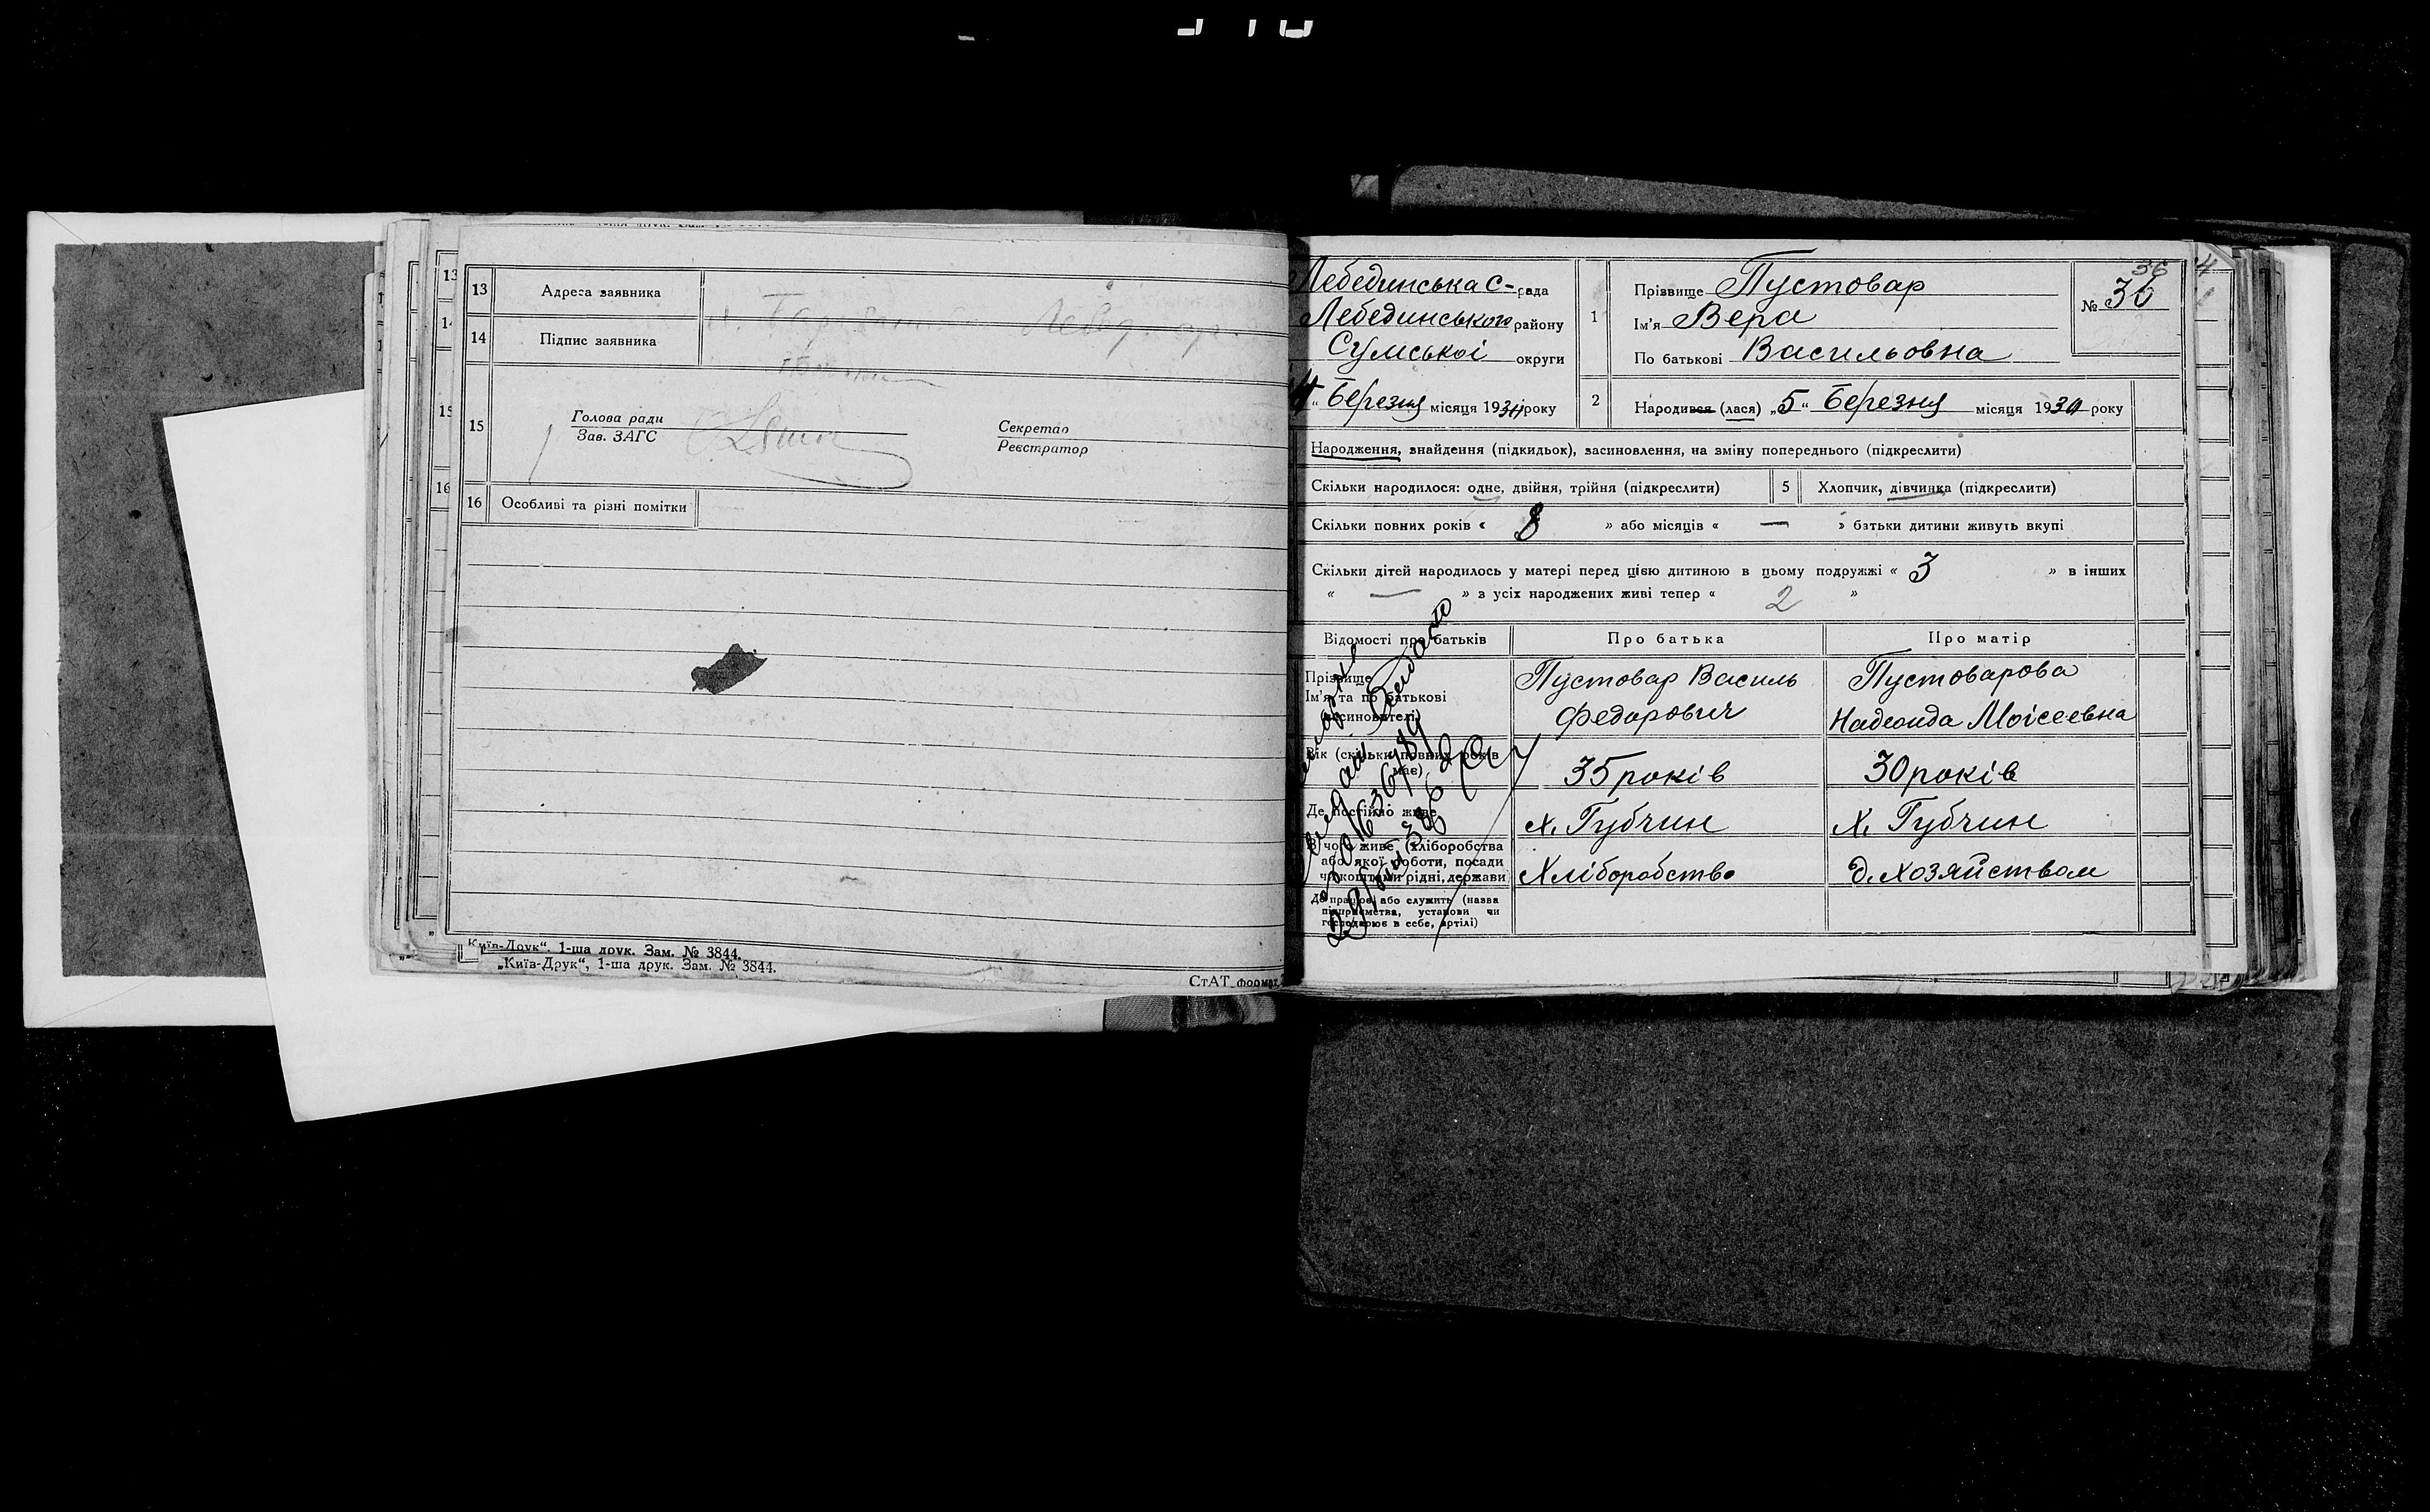 13 Адреса заявника
14 Підпис заявника
15 Голова ради
Зав. ЗАГС
Секретар
Реєстратор
16 Особливі та різні помітки
Київ-Друк“. 1-ша друк. Зам. № 3844.
„Київ-Друк“, 1-ша друк. Зам. № 3844.
СтАТ формат
Лебединська с-рада
Лебединського району
Сумської округи
“ Березня місяця 1930 року
1 Прізвище Пустовар
Ім'я Вера
По батькові Васильовна
36
№ 36
2 Народився (лася) „5“ Березня місяця 1930 року
Народження, знайдення (підкидьок), васиновлення, на зміну попереднього (підкреслити)
Скільки народилося: одне, двійня, трійня (підкреслити) 5 Хлопчик, дівчинка (підкреслити)
Скільки повних років « 8 » або місяців « — » батьки дитини живуть вкупі
Скільки дітей народилось у матері перед цією дитиною в цьому подружжі « 3 » в інших
« — » з усіх народжених живі тепер « 2 »
Відомості про батьків Про батька Про матір
Прізвище
Ім'я та по батькові
Пустовар Василь
Федорович
Пустоварова
Надеоида Моісеевна
Вік (скільки повних років має) 35 років 30 років
Де постійно живе х. Губчин х. Губчин
живе (хліборобства
або якої роботи, посади
чи коштами рідні, держави
Хліборобство д. хозяйством
Де працює або служить (назва
підприємства, установи чи
господарює в себе, артілі)